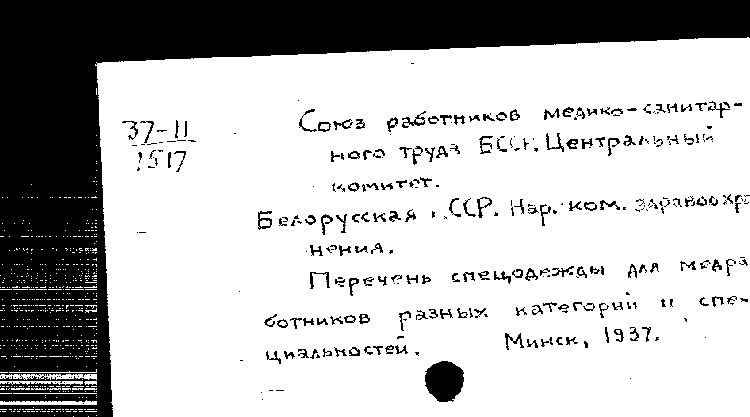 37-II
1517
Союз работников медико-санитар-
ного труда БССР. Центральный
комитет.
Белорусская ССР. Нар. ком. здравоохра
нения.
Перечень спецодежды для медра
ботников разных категорий и спе-
циальностей. Минск, 1937.